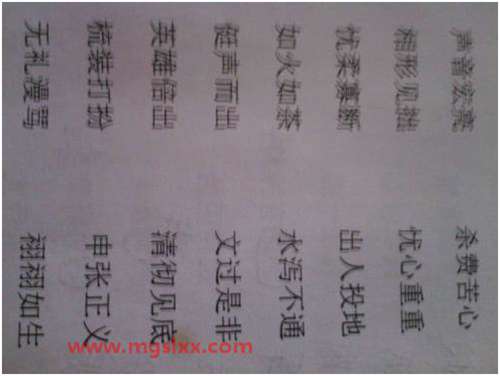 声音宏亮 杀费苦心
相形见拙 忧心重重
忧柔寡断 出人投地
如火如荼 水泻不通
挺声而出 文过是非
英雄倍出 清彻见底
梳装打扮 申张正义
无礼漫骂 栩栩如生
www.mgslxx.com